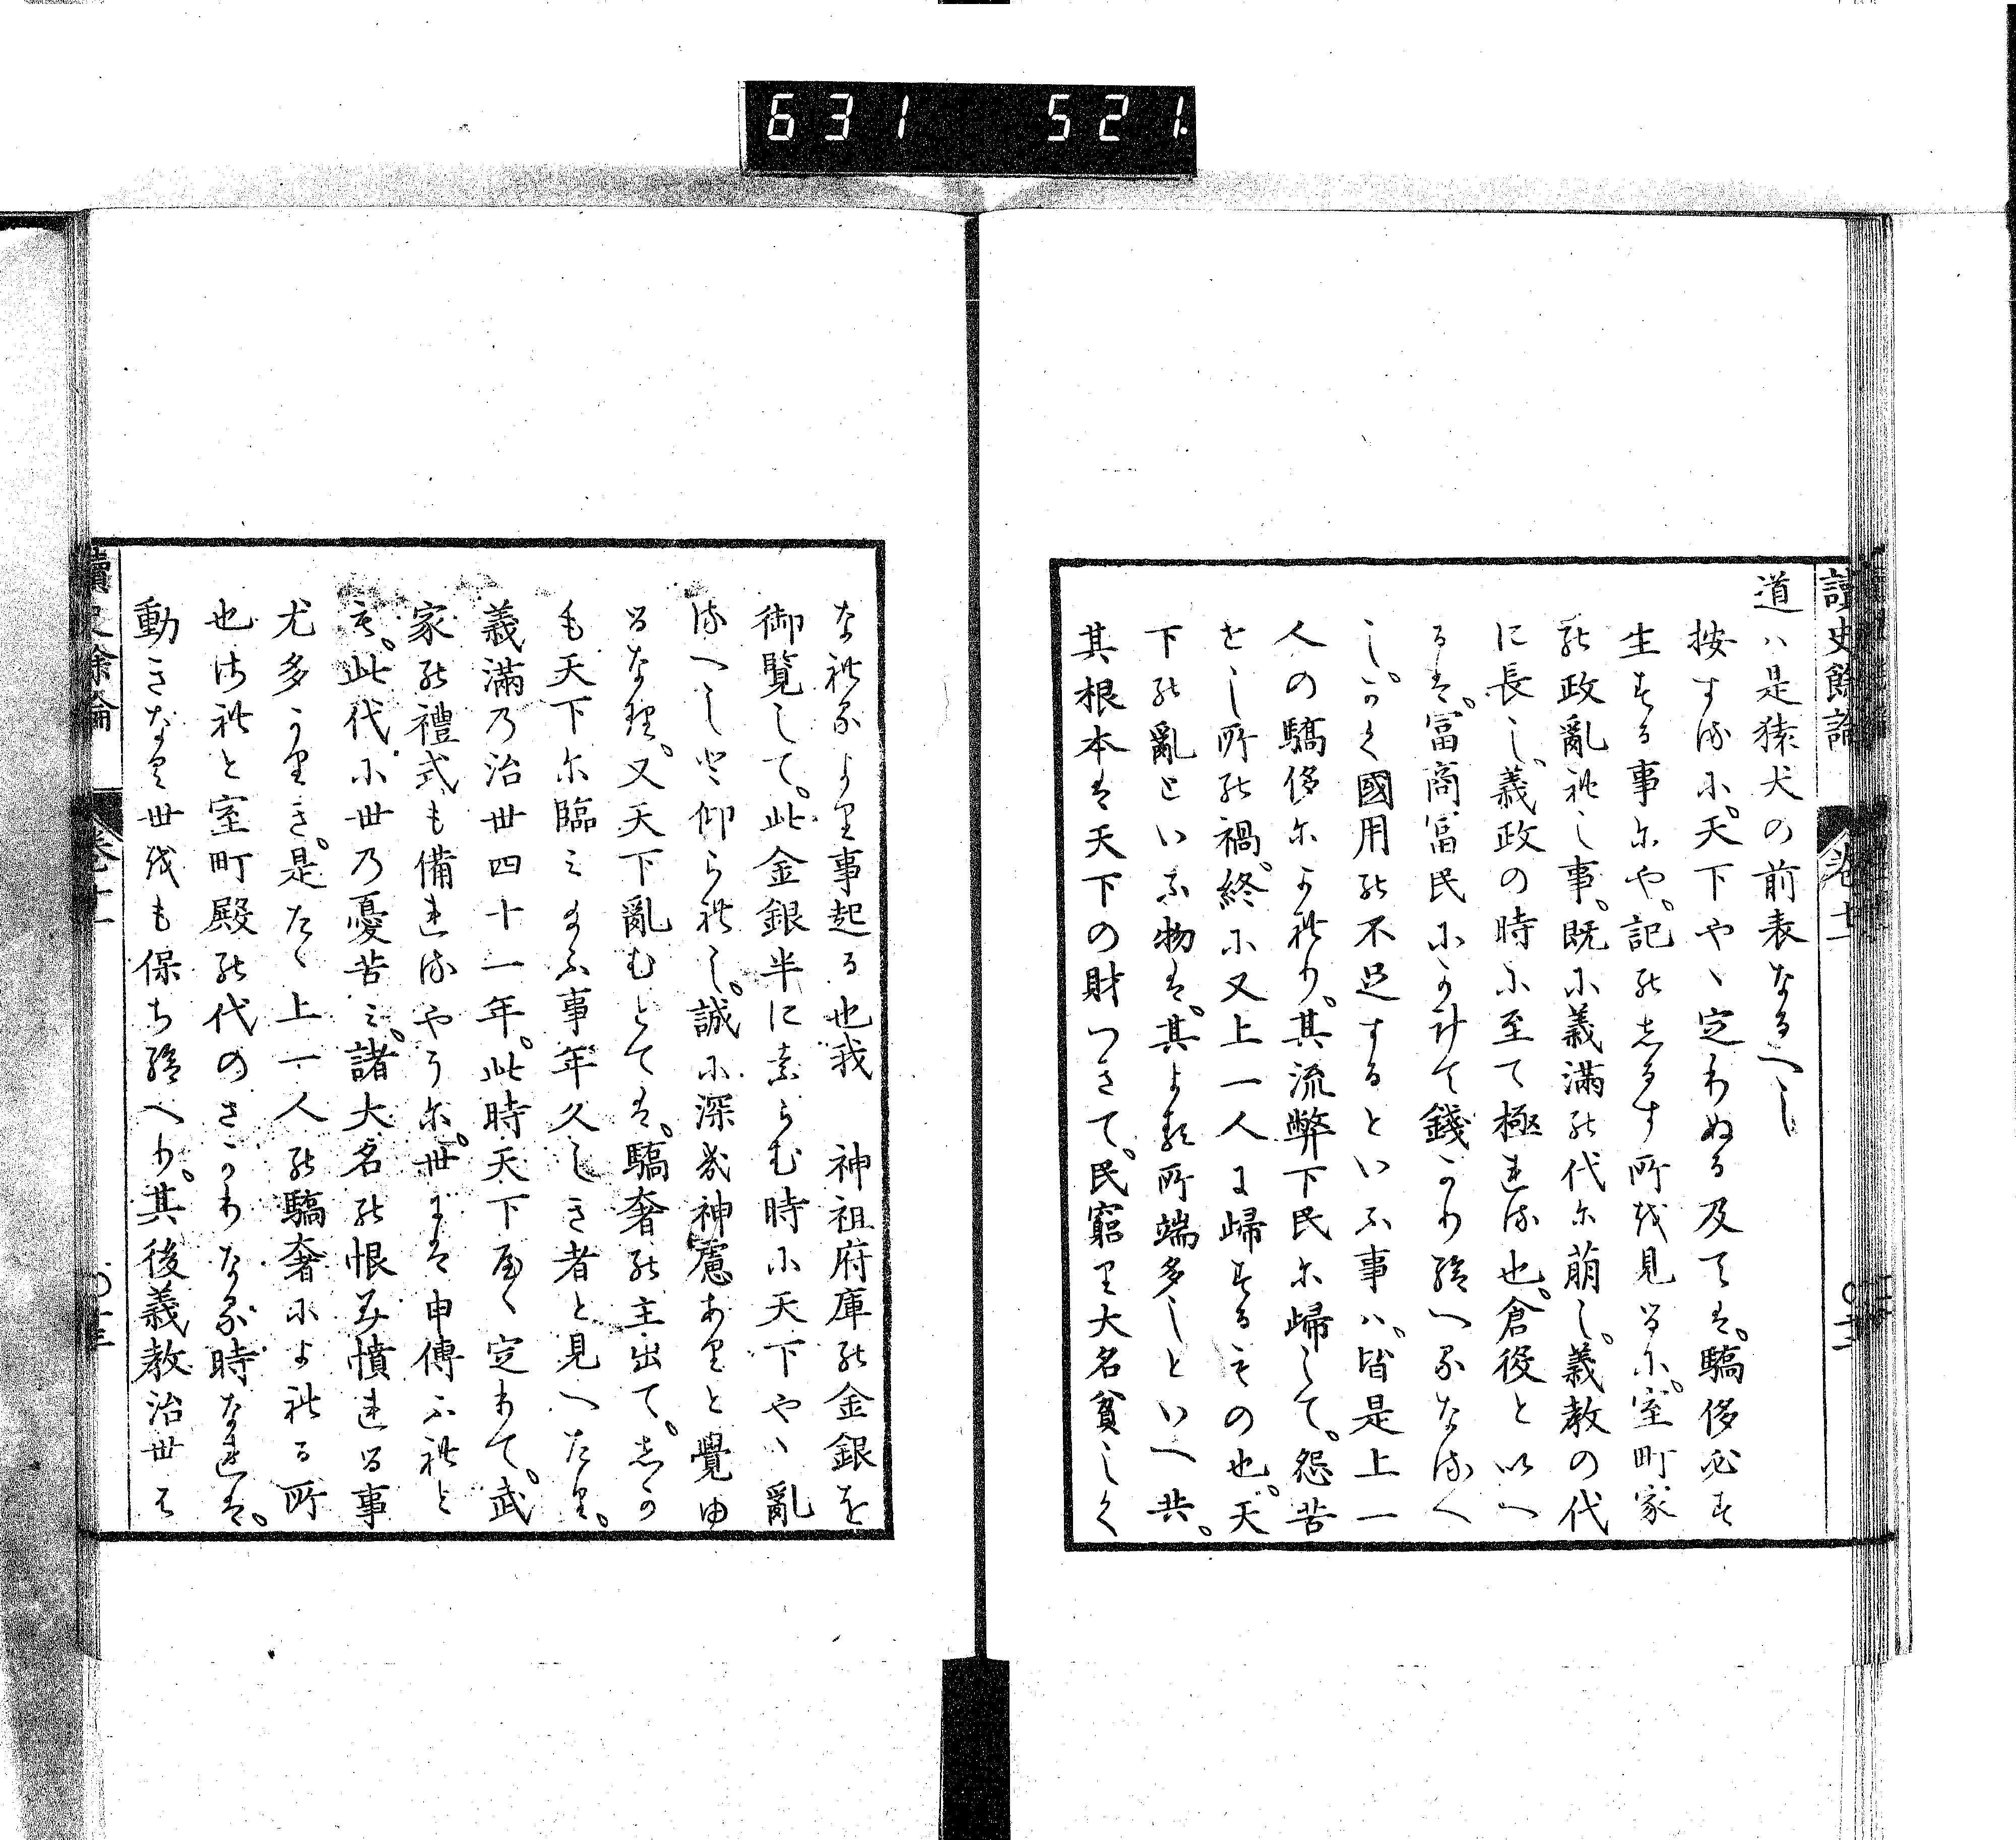 631 521.
讀史餘論 卷十一
道ハ是猿犬の前表なるへし
按するに。天下やヽ定りぬる及ては。驕侈必す
生する事にや。記のしるす所を見るに。室町家
の政亂れし事。既に義滿の代に萠し。義教の代
に長し。義政の時に至て極れる也。倉役と以へ
るは。冨商冨民にかけて錢かり給へるなるへ
し。かく國用の不足するといふ事ハ。皆是上一
人の驕侈によれり。其流弊下民に歸して。怨苦
をし所の禍。終に又上一人に歸するもの也。天
下の亂といふ物は。其よる所端多しといへ共。
其根本は天下の財つきて。民窮り大名貧しく
なれるより事起る也我 神祖府庫の金銀を
御覧して。此金銀半に減らむ時に天下やヽ亂
るへしと仰られし。誠に深き神慮ありと覺ゆ
るなり。又天下亂むとては。驕奢の主出て。しか
も天下に臨み給ふ事年久しき者と見へたり。
義滿乃治世四十一年。此時天下殆く定りて。武
家の禮式も備れるやうに。世には申傳ふれと
も。此代に世乃憂苦み。諸大名の恨み憤れる事
尤多かりき。是たヽ上一人の驕奢によれる所
也されと室町殿の代のさかりなる時なれは。
動きなく世をも保ち給へり。其後義教治世は
讀史餘論 卷十一